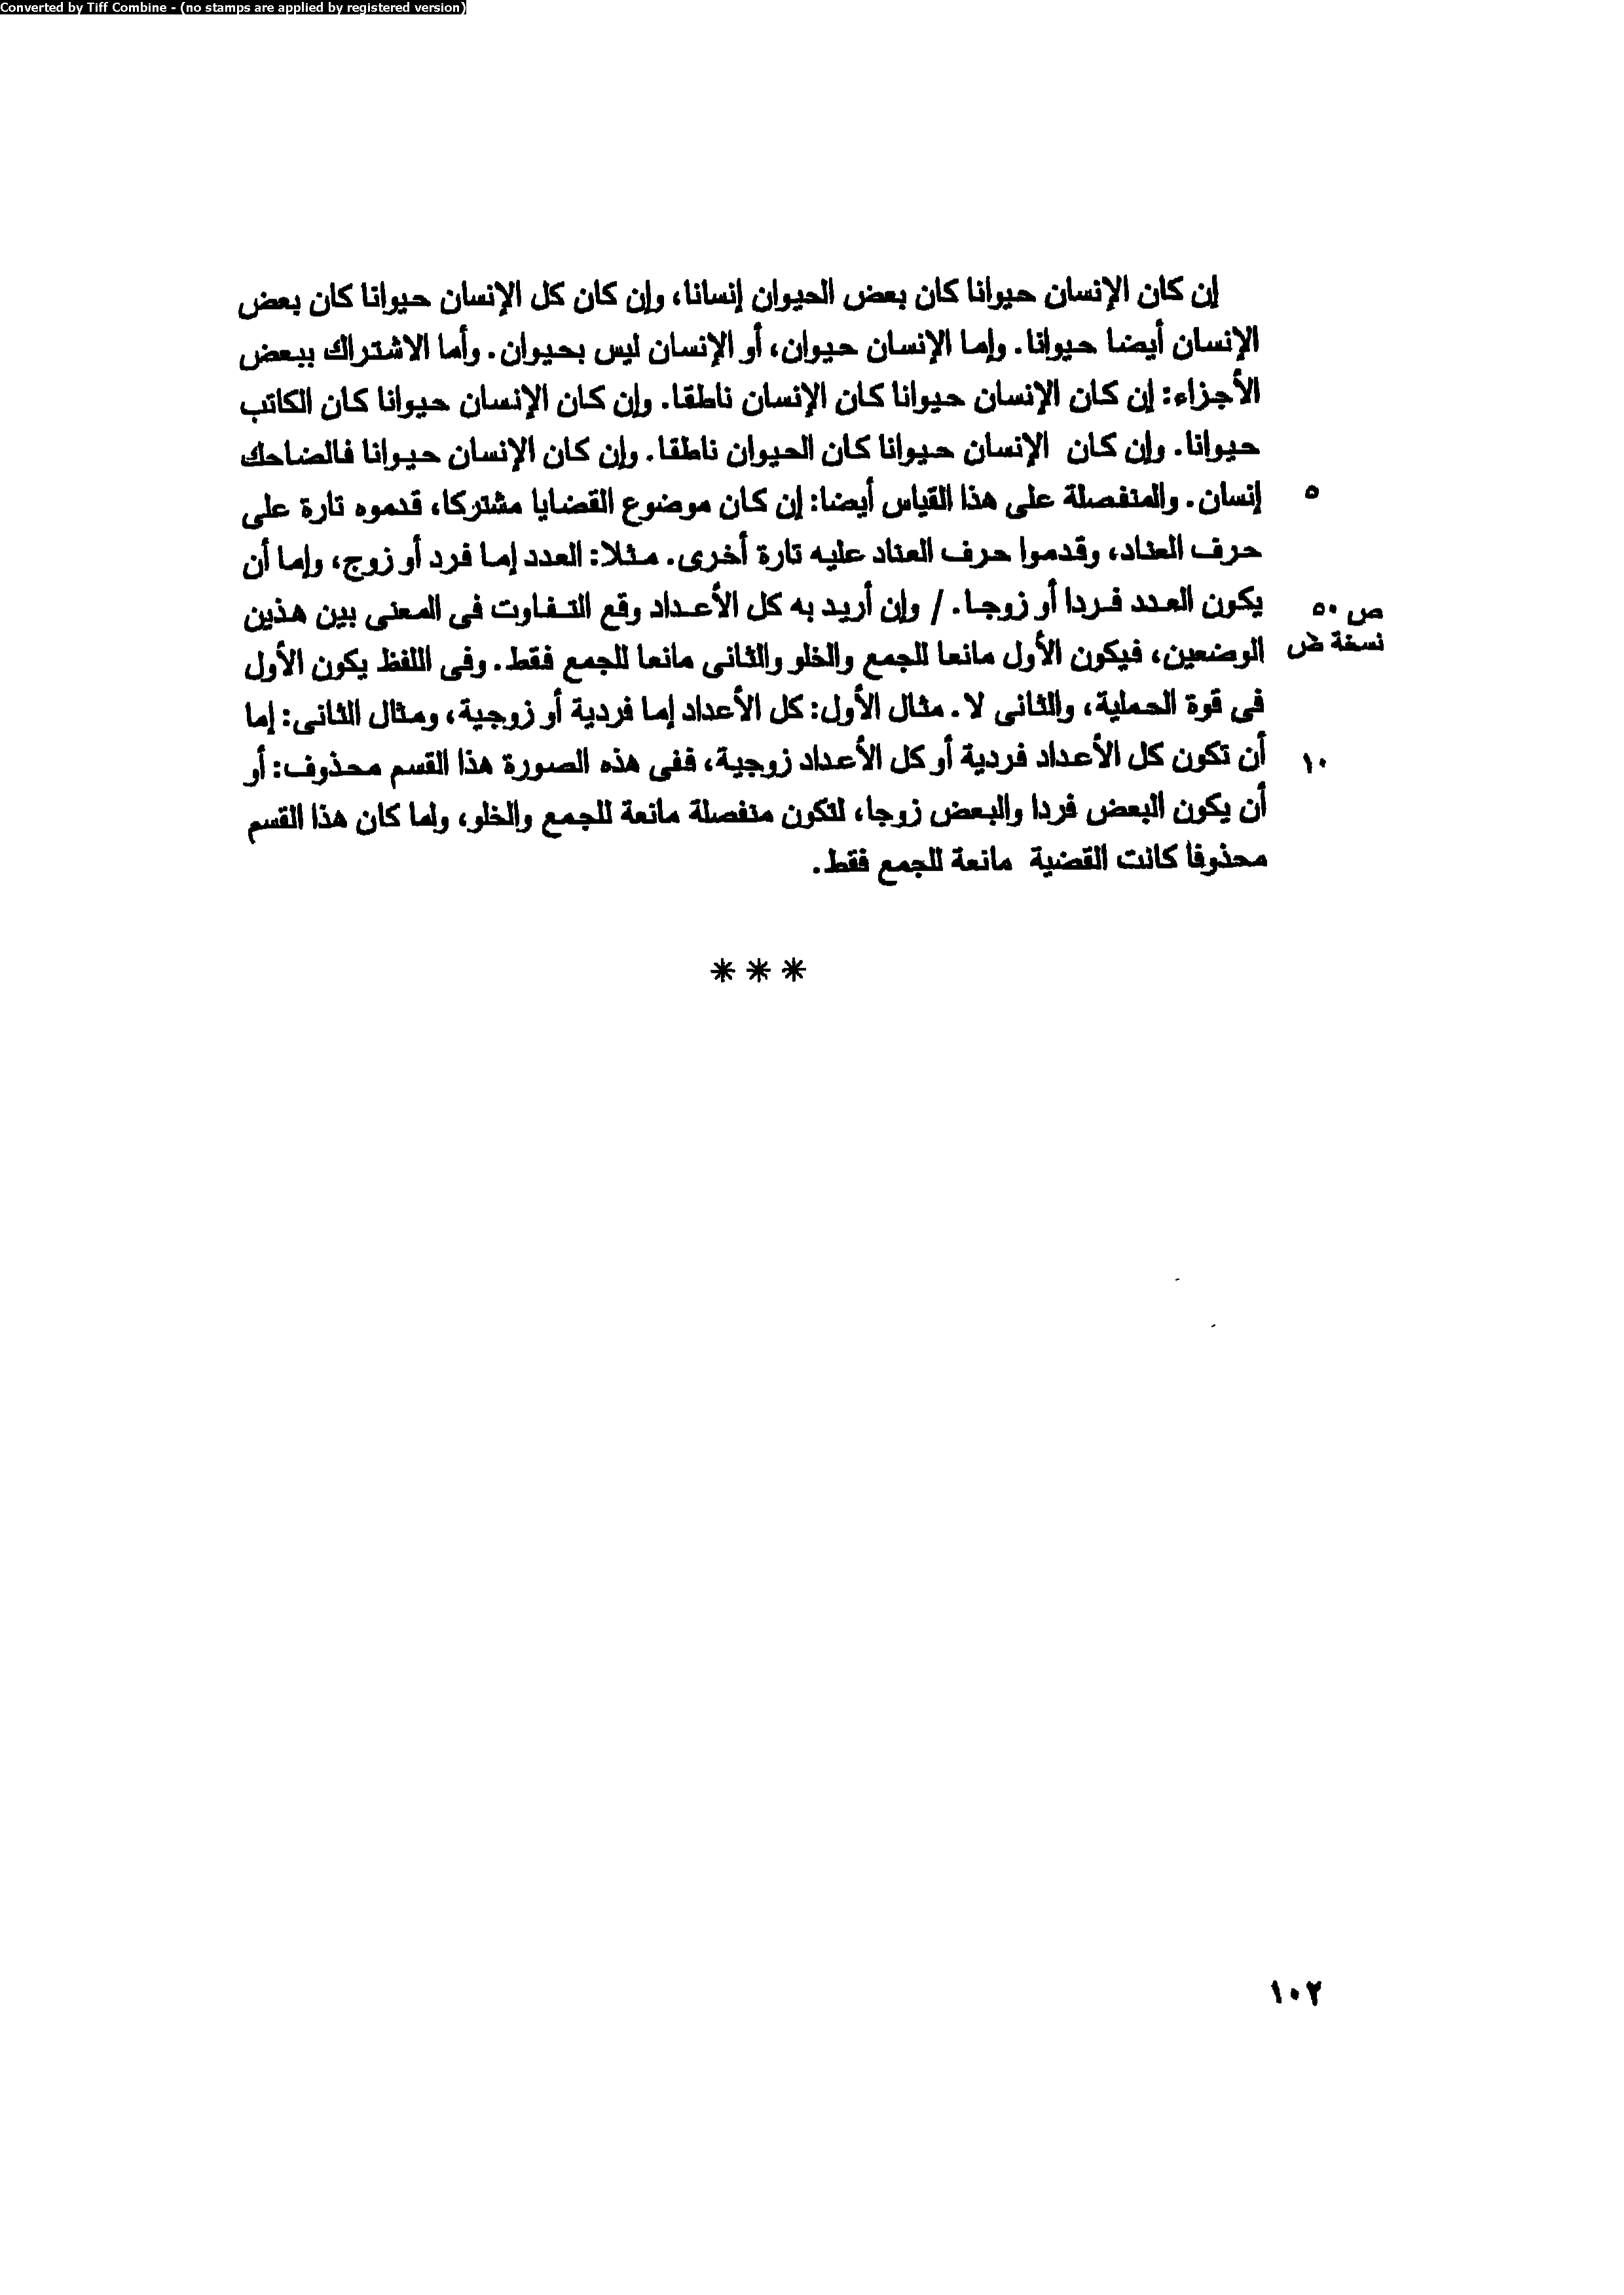 Converted by Tiff Combine - (no stamps are applied by registered version)
إن كان الإنسان حيوانا كان بعض الحيوان إنسانا، وإن كان كل الإنسان حيوانا كان بعض
الإنسان أيضا حيوانا. وإما الإنسان حيوان، أو الإنسان ليس بحيوان. وأما الاشتراك ببعض
الأجزاء: إن كان الإنسان حيوانا كان الإنسان ناطقا. وإن كان الإنسان حيوانا كان الكاتب
حيوانا. وإن كان الإنسان حيوانا كان الحيوان ناطقا. وإن كان الإنسان حيوانا فالضاحك
٥ إنسان. والمنفصلة على هذا القياس أيضا: إن كان موضوع القضايا مشتركا، قدموه تارة على
حرف العناد، وقدموا حرف العناد عليه تارة أخرى. مثلا: العدد إما فرد أو زوج، وإما أن
ص ٥٠ يكون العدد فردا أو زوجا. / وإن أريد به كل الأعداد وقع التفاوت فى المعنى بين هذين
نسخة ض الوضعين، فيكون الأول مانعا للجمع والخلو والثانى مانعا للجمع فقط. وفى اللفظ يكون الأول
فى قوة الحملية، والثانى لا. مثال الأول: كل الأعداد إما فردية أو زوجية، ومثال الثانى: إما
١٠ أن تكون كل الأعداد فردية أو كل الأعداد زوجية، ففى هذه الصورة هذا القسم محذوف: أو
أن يكون البعض فردا والبعض زوجا، لتكون منفصلة مانعة للجمع والخلو، ولما كان هذا القسم
محذوفا كانت القضية مانعة للجمع فقط.
* * *
١٠٢